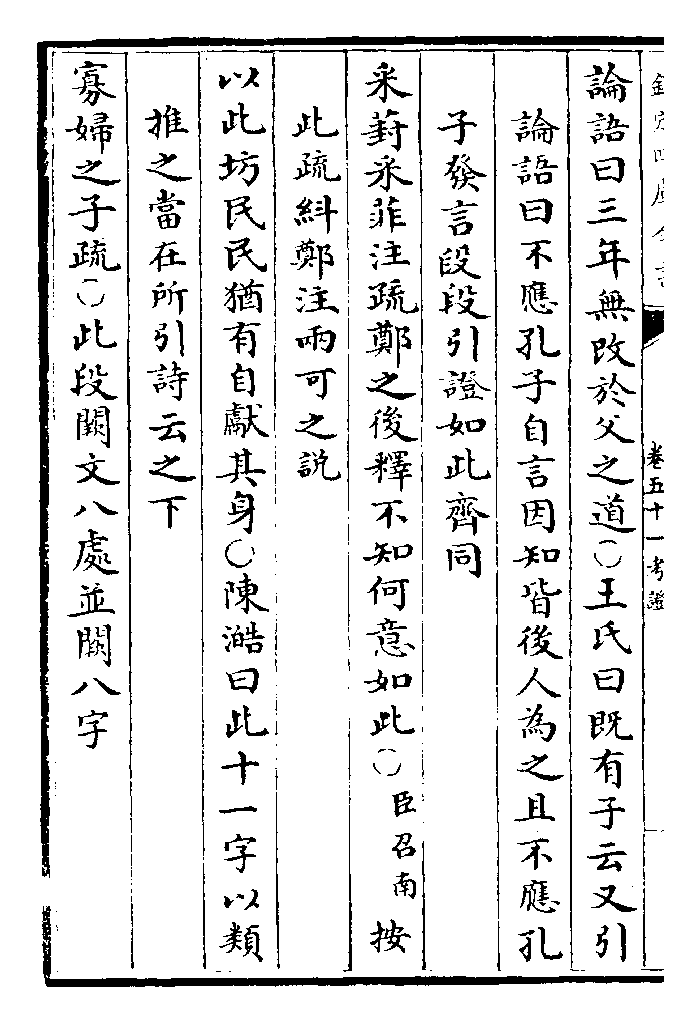 欽定四庫全書
卷五十一考證
論語曰三年無改於父之道○王氏曰既有子云又引
論語曰不應孔子自言因知皆後人為之且不應孔
子發言段段引證如此齊同
采葑采菲注疏鄭之後釋不知何意如此○臣召南按
此疏糾鄭注兩可之説
以此坊民民猶有自獻其身○陳澔曰此十一字以類
推之當在所引詩云之下
寡婦之子疏○此段闕文八處並闕八字